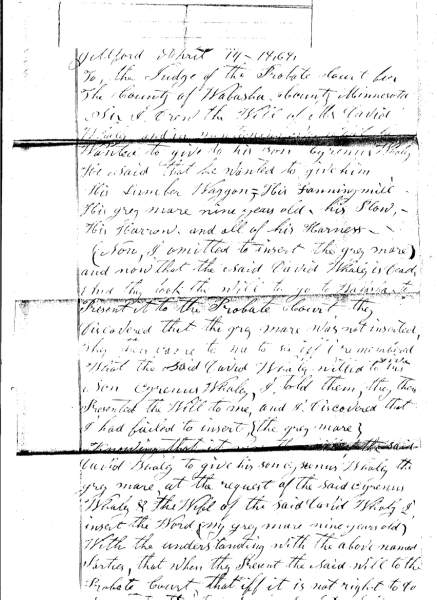 Gillford April 14 - 1864.
To, the Judge of the Probate Court for
The County of Wabasha County Minnesota
Sir I Drew the Will of Mr David
Whaly and in
Wanted to give to his son Cyrenus Whaly
He said that he wanted to give him
His Lumber Waggon = His Fanning mill -
His grey mare nine years old, his Plow, -
His Harrow, and all of his Harness -
(Now, I omitted to insert the grey mare)
and now that the said David Whaly is Dead,
And they took the will to go to
Present it to the Probate Court, they
Discovered that the grey mare was not inserted,
they then came to me to see iff I remembered
What the said David Whaly willed to his
Son Cyrenus Whaly, I told them, they then
Presented the Will to me, and I Discovered that
I had failed to insert (the grey mare)
Knowing that it the said
David Whaly to give his son Cyrenus Whaly the
grey mare, at the request of the said Cyrenus
Whaly & the Wife of the said David Whaly I
insert the Word (my grey mare nine years old)
With the understanding with the above named
Parties, that when they Present the said will to the
Probate Court, that iff it is not right to go